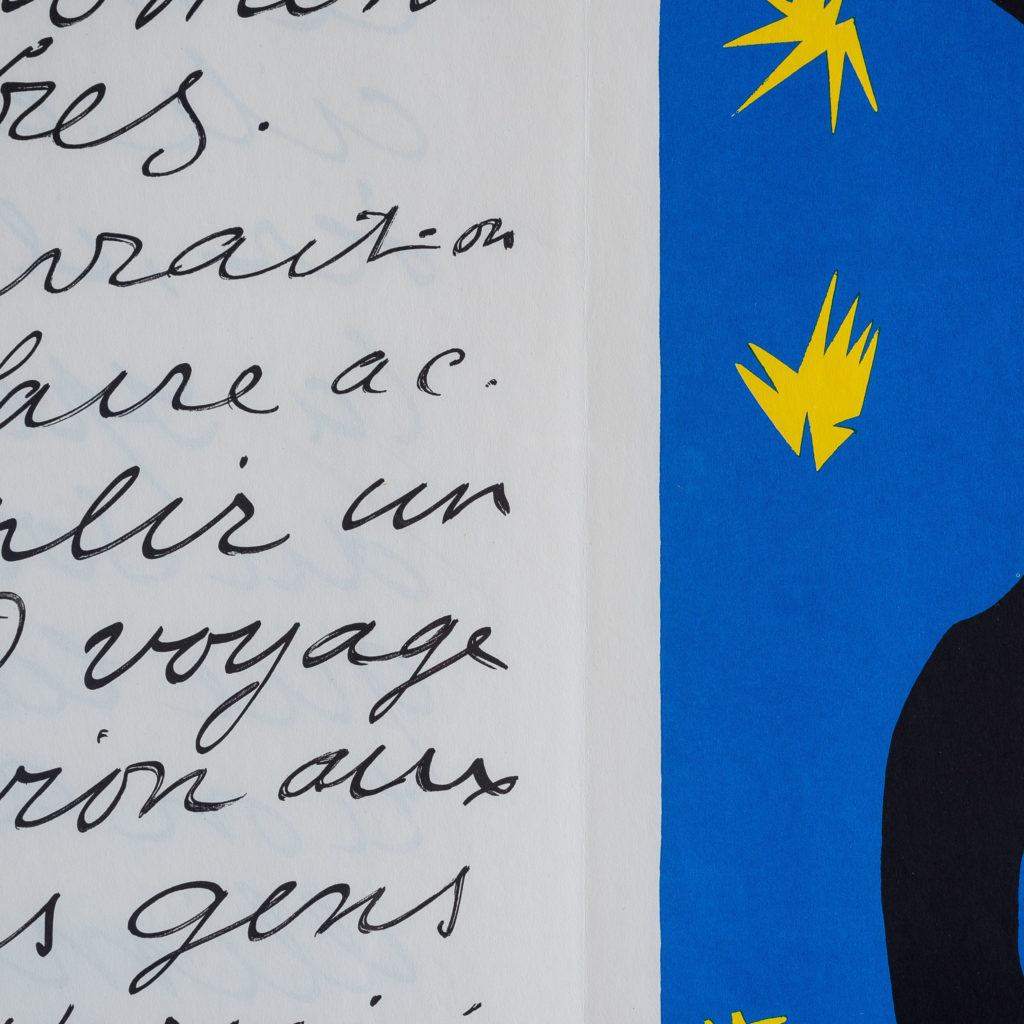 res.
vrait-on
faire ac.
plir un
voyage
vion aux
s gens